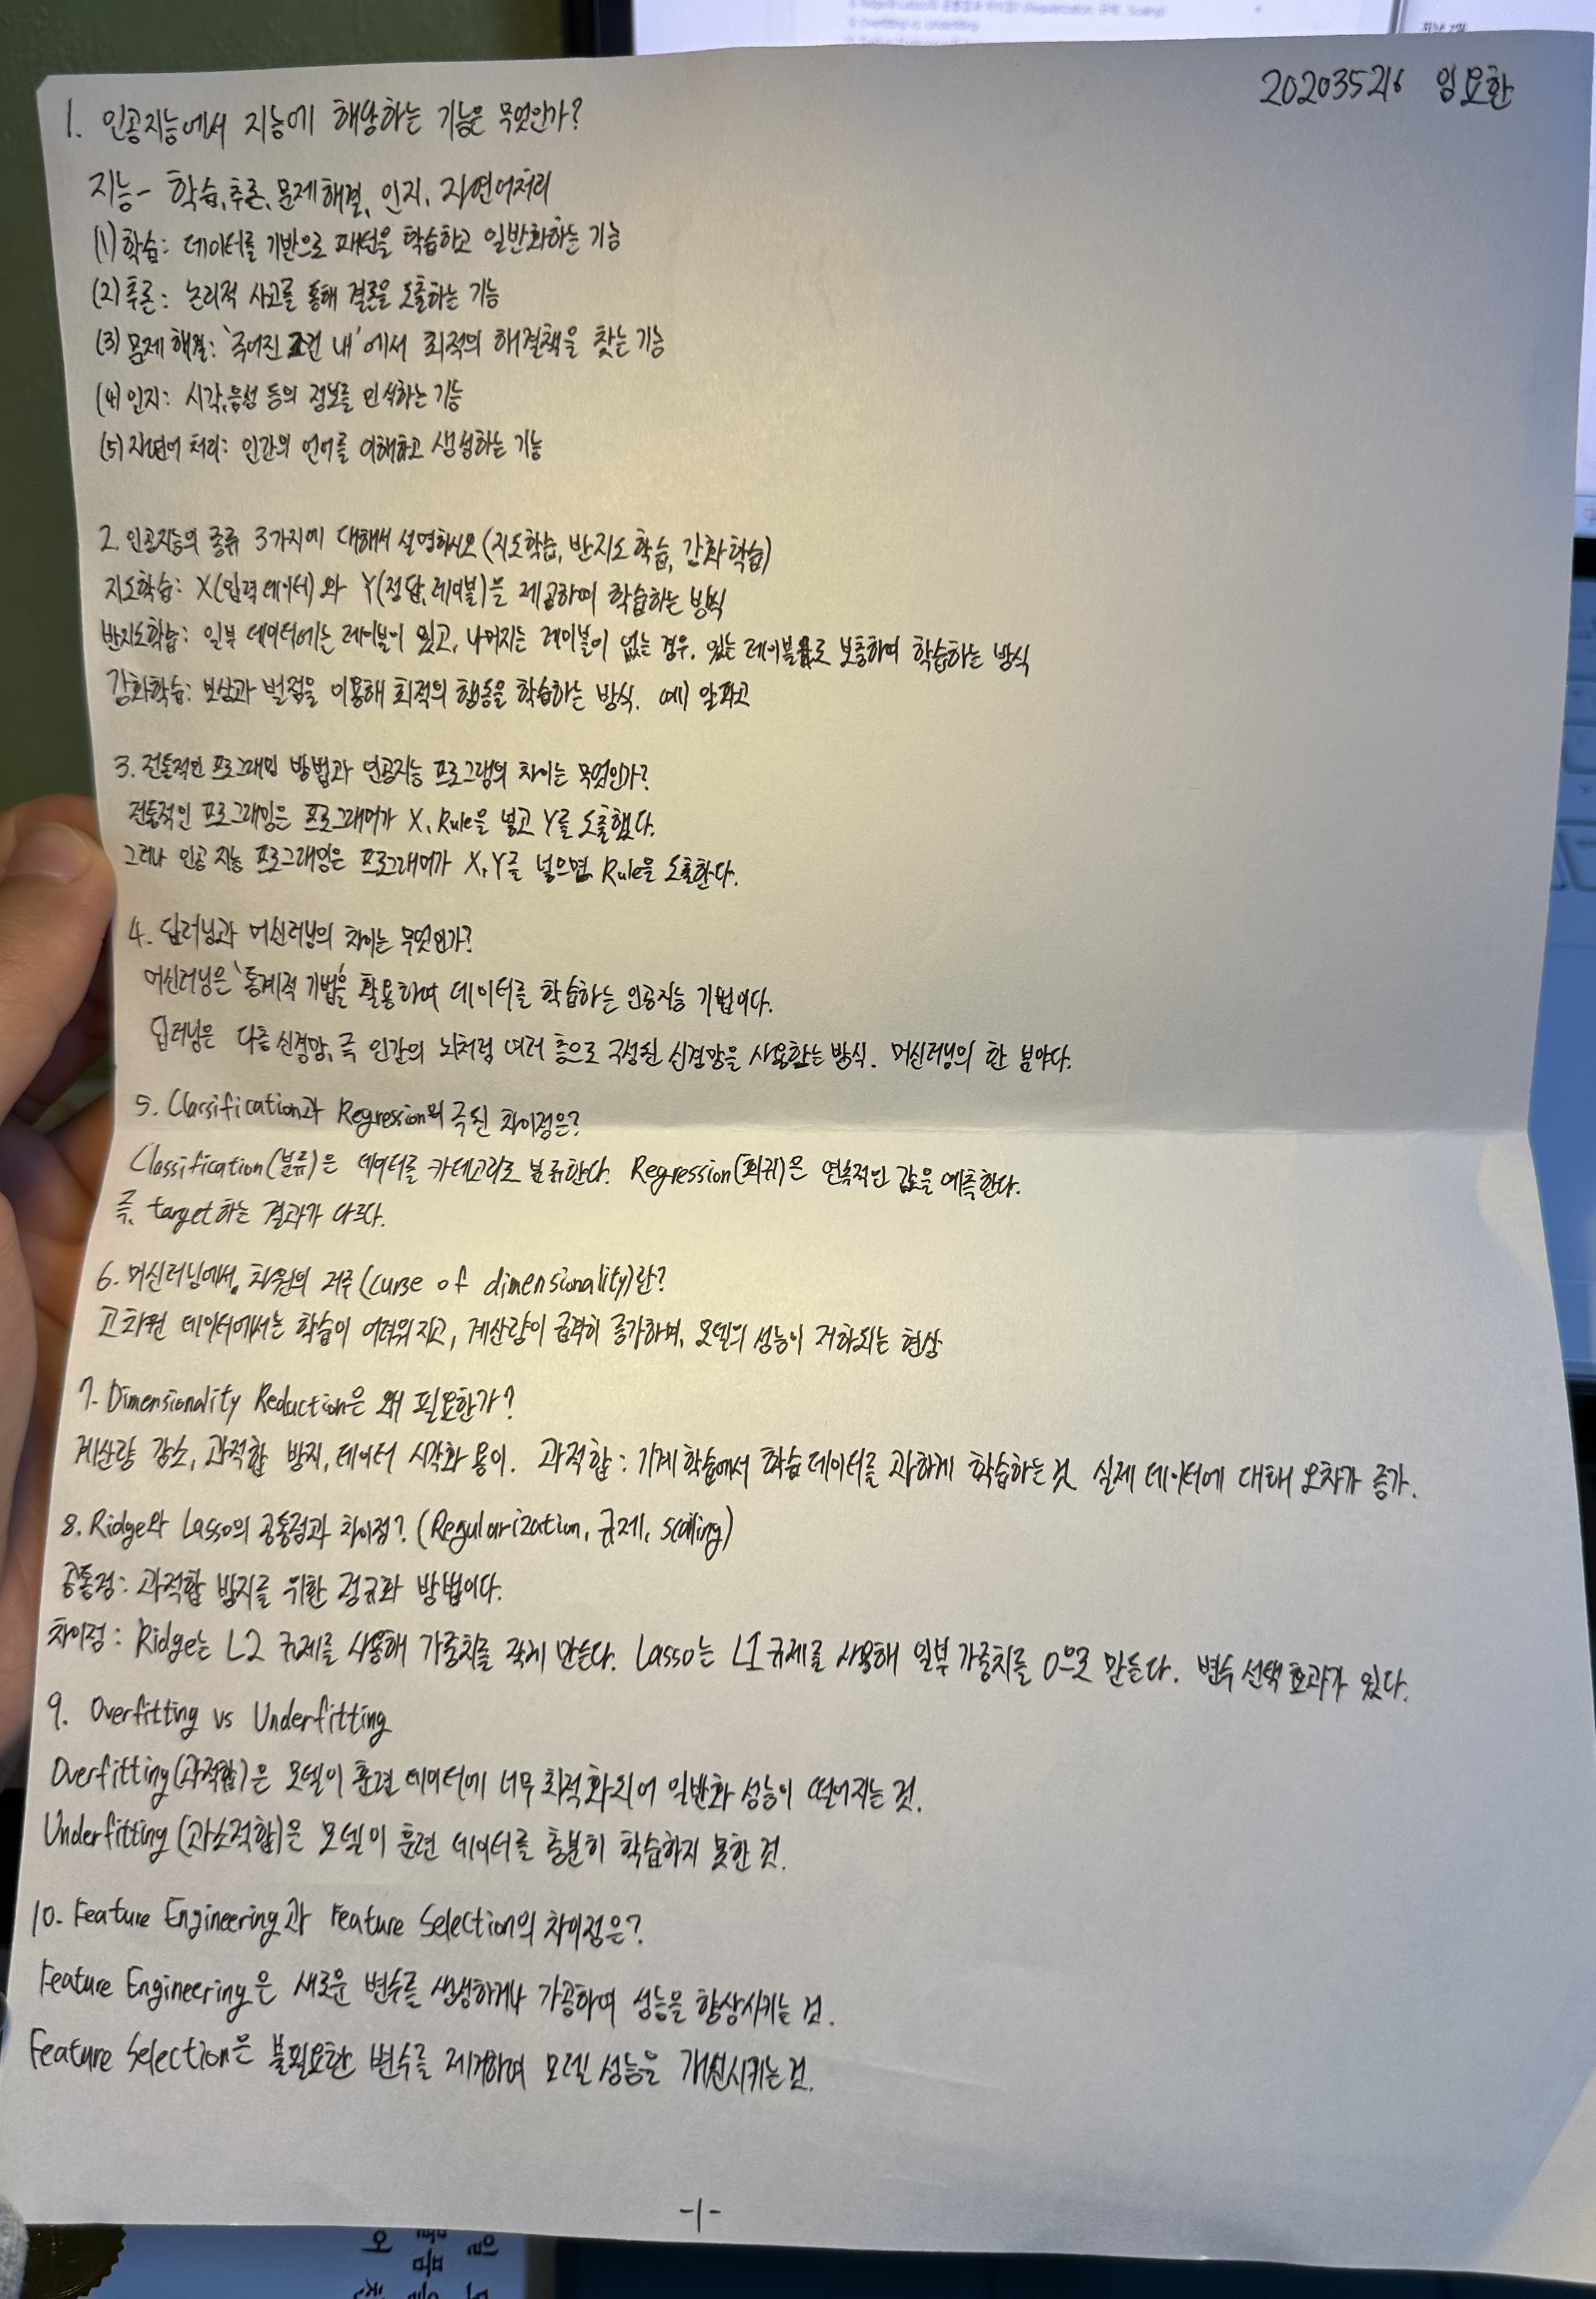 202035216 임요환
1. 인공지능에서 지능에 해당하는 기능은 무엇인가?
지능- 학습, 추론, 문제해결, 인지, 자연어처리
(1) 학습: 데이터를 기반으로 패턴을 학습하고 일반화하는 기능
(2) 추론: 논리적 사고를 통해 결론을 도출하는 기능
(3) 문제 해결: '주어진 조건 내'에서 최적의 해결책을 찾는 기능
(4) 인지: 시각, 음성 등의 정보를 인식하는 기능
(5) 자연어 처리: 인간의 언어를 이해하고 생성하는 기능
2. 인공지능의 종류 3가지에 대해서 설명하시오 (지도학습, 반지도 학습, 강화학습)
지도학습: X(입력데이터)와 Y(정답, 레이블)을 제공하여 학습하는 방식
반지도학습: 일부 데이터에는 레이블이 있고, 나머지는 레이블이 없는 경우. 있는 레이블로 보충하며 학습하는 방식
강화학습: 보상과 벌점을 이용해 최적의 행동을 학습하는 방식. 예) 알파고
3. 전통적인 프로그래밍 방법과 인공지능 프로그램의 차이는 무엇인가?
전통적인 프로그래밍은 프로그래머가 X, Rule을 넣고 Y를 도출했다.
그러나 인공 지능 프로그래밍은 프로그래머가 X, Y를 넣으면 Rule을 도출한다.
4. 딥러닝과 머신러닝의 차이는 무엇인가?
머신러닝은 '통계적 기법'을 활용하여 데이터를 학습하는 인공지능 기법이다.
딥러닝은 다층 신경망, 즉 인간의 뇌처럼 여러 층으로 구성된 신경망을 사용하는 방식. 머신러닝의 한 분야다.
5. Classification과 Regression의 주된 차이점은?
Classification(분류)은 데이터를 카테고리로 분류한다. Regression(회귀)은 연속적인 값을 예측한다.
즉, target하는 결과가 다르다.
6. 머신러닝에서, 차원의 저주(curse of dimensionality)란?
고차원 데이터에서는 학습이 어려워 지고, 계산량이 급격히 증가하며, 모델의 성능이 저하되는 현상
7. Dimensionality Reduction은 왜 필요한가?
계산량 감소, 과적합 방지, 데이터 시각화 용이. 과적합: 기계 학습에서 학습 데이터를 과하게 학습하는 것 실제 데이터에 대해 오차가 증가.
8. Ridge와 Lasso의 공통점과 차이점? (Regularization, 규제, scaling)
공통점: 과적합 방지를 위한 정규화 방법이다.
차이점: Ridge는 L2 규제를 사용해 가중치를 작게 만든다. Lasso는 L1 규제를 사용해 일부 가중치를 0으로 만든다. 변수 선택 효과가 있다.
9. Overfitting vs Underfitting
Overfitting(과적합)은 모델이 훈련 데이터에 너무 최적화되어 일반화 성능이 떨어지는 것.
Underfitting(과소적합)은 모델이 훈련 데이터를 충분히 학습하지 못한 것.
10. Feature Engineering과 Feature Selection의 차이점은?
Feature Engineering은 새로운 변수를 생성하거나 가공하여 성능을 향상시키는 것.
Feature Selection은 불필요한 변수를 제거하여 모델 성능을 개선시키는 것.
-1-